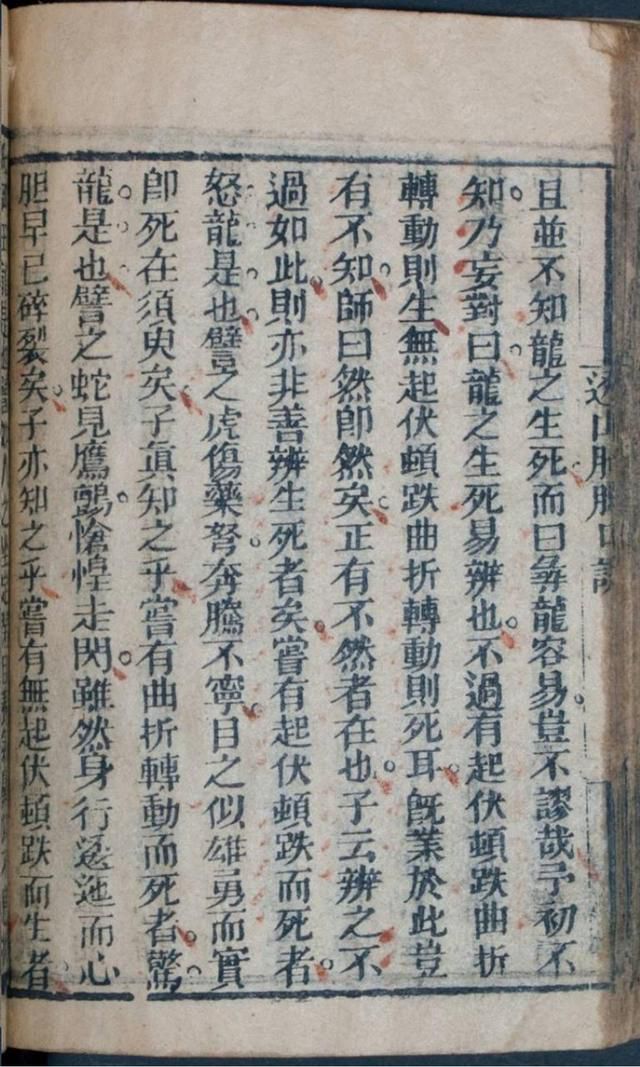 且並不知龍之生死而曰彜龍容易豈不謬哉予初不
知乃妄對曰龍之生死易辨也不過有起伏頓跌曲折
轉動則生無起伏頓跌曲折轉動則死耳旣業於此豈
有不知師曰然卽然矣正有不然者在也子云辨之不
過如此則亦非善辨生死者矣嘗有起伏頓跌而死者
怒龍是也譬之虎傷藥弩奔騰不寧目之似雄勇而實
卽死在須臾矣子眞知之乎嘗有曲折轉動而死者驚
龍是也譬之蛇見鷹鸇愴惶走閃雖然身行逶迤而心
胆早已碎裂矣子亦知之乎嘗有無起伏頓跌而生者